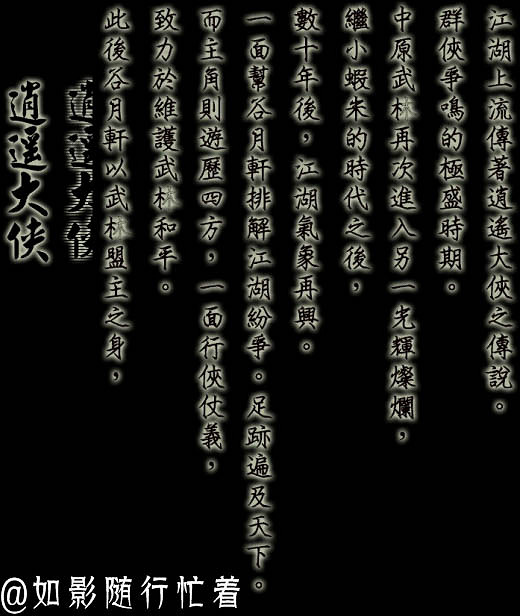 逍遥大侠
此後谷月軒以武林盟主之身，
致力於維護武林和平。
而主角則遊歷四方，一面行俠仗義，
一面幫谷月軒排解江湖紛爭。足跡遍及天下。
數十年後，江湖氣象再興。
繼小蝦米的時代之後，
中原武林再次進入另一光輝燦爛，
群俠爭鳴的極盛時期。
江湖上流傳著逍遙大俠之傳說。
@如影随行忙着